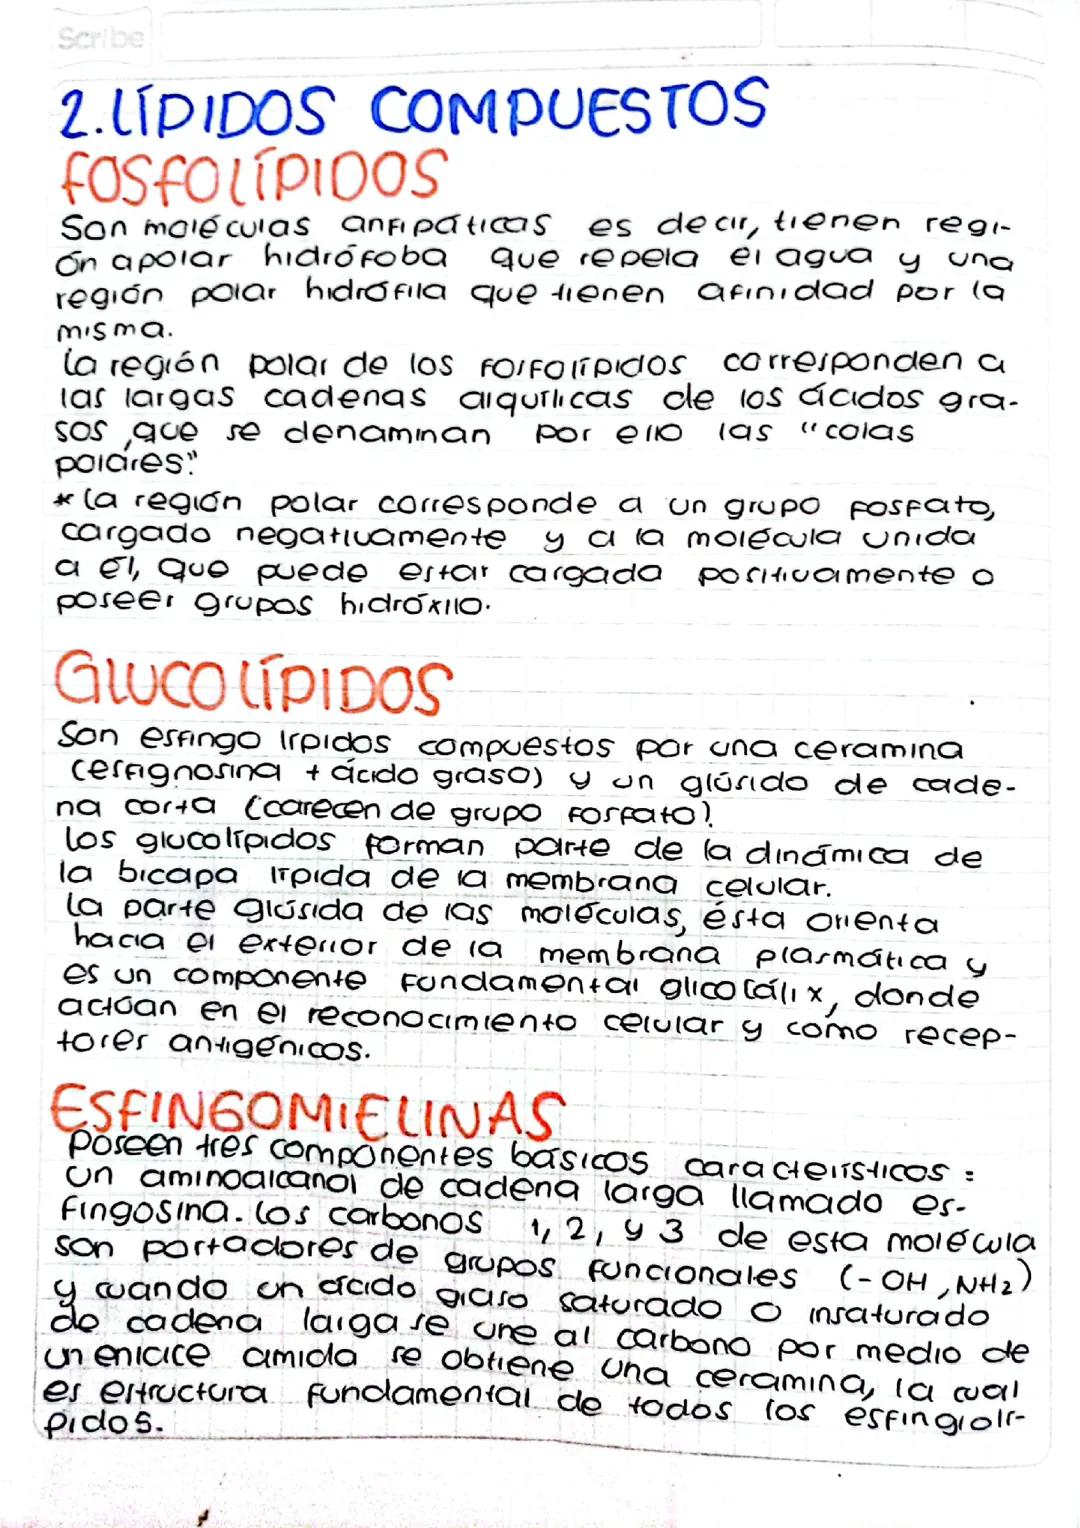 Scribe
2. LÍPIDOS COMPUESTOS
FOSFOLÍPIDOS
Son moléculas anfipáticas es decir, tienen regi-
ón apolar hidrófoba que repela el agua y una
región polar hidrófila que tienen afinidad por la
misma.
La región polar de los fosfolípidos corresponden a
las largas cadenas alquílicas de los ácidos gra-
sos, que se denaminan por ello las "colas
polares"
* La región polar corresponde a un grupo fosfato,
cargado negativamente y a la molécula unida
a él, que puede estar cargada positivamente o
poseer grupos hidróxilo.
GLUCOLÍPIDOS
Son esfingo lípidos compuestos por una ceramina
(esfignosina + ácido graso) y un glúsido de cade-
na corta (carecen de grupo fosfato).
Los glucolípidos forman parte de la dinámica de
la bicapa lípida de la membrana celular.
La parte glúsida de las moléculas, ésta orienta
hacia el exterior de la membrana plasmática y
es un componente fundamental glicocálix, donde
actúan en el reconocimiento celular y como recep-
tores antigénicos.
ESFINGOMIELINAS
Poseen tres componentes básicos característicos:
Un aminoalcanol de cadena larga llamado es-
fingosina. Los carbonos 1, 2, y 3 de esta molécula
son portadores de grupos funcionales (-OH, NH2)
y cuando un ácido graso saturado o insaturado
de cadena larga se une al carbono por medio de
un enlace amida se obtiene una ceramina, la cual
es estructura fundamental de todos los esfingiolí-
pidos.